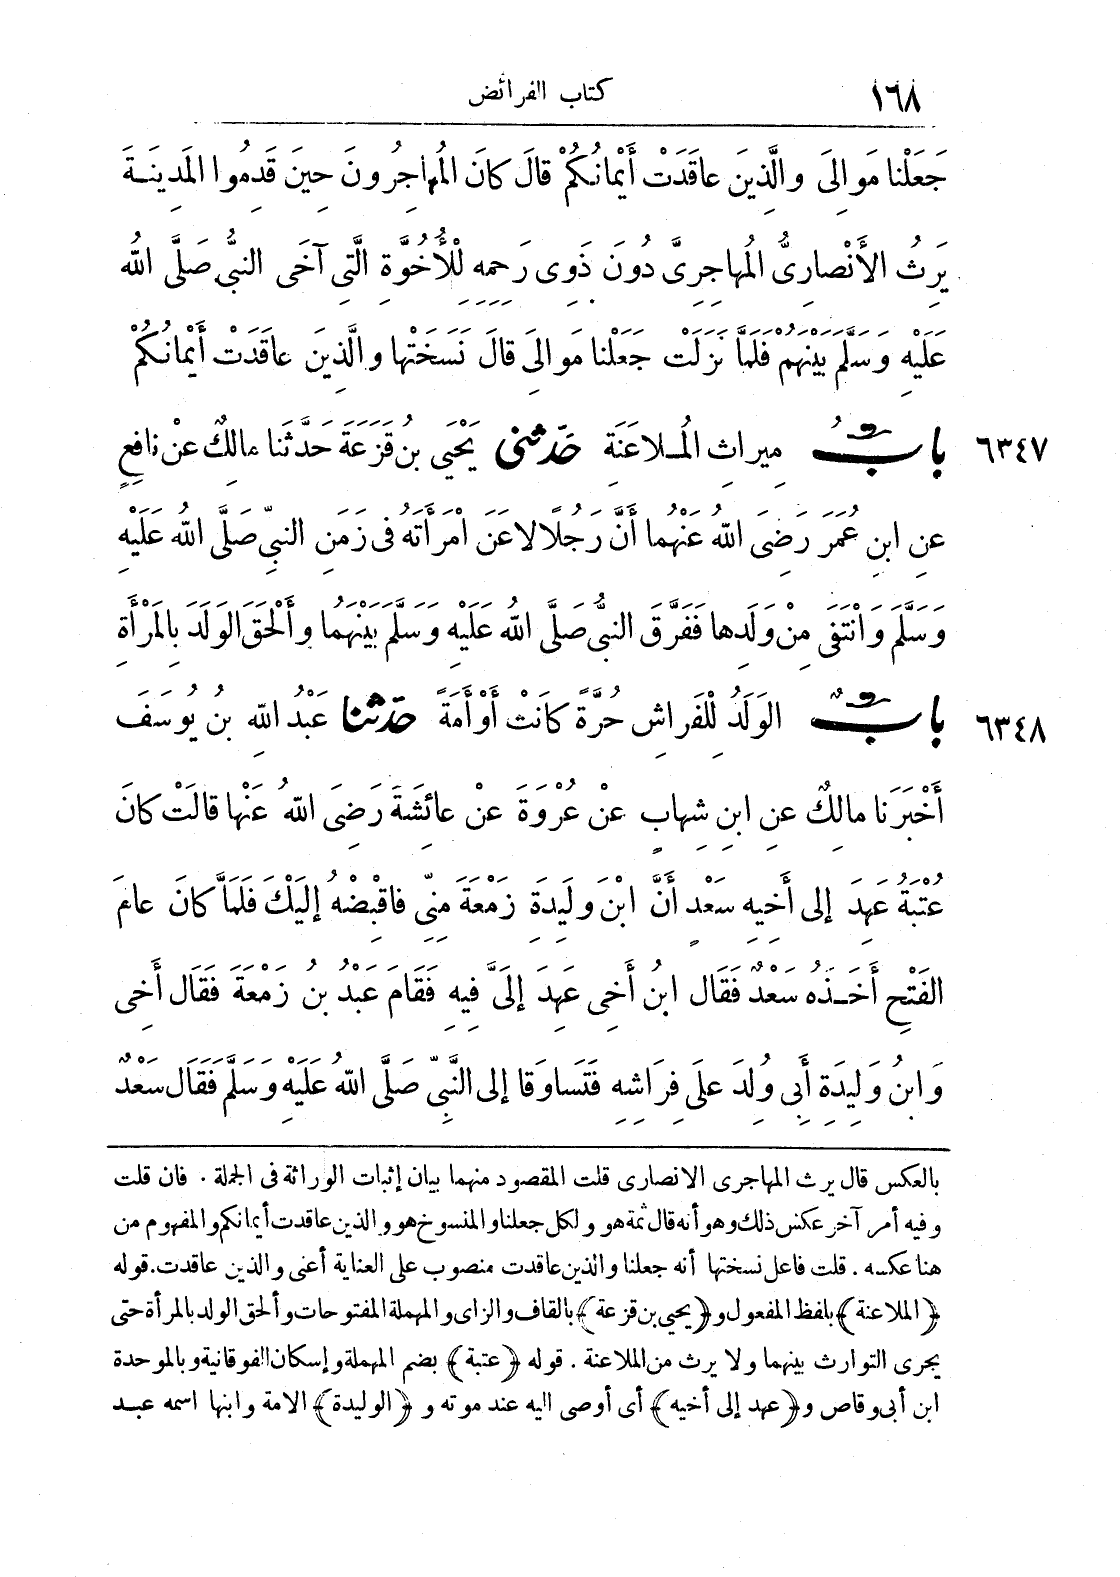 ١٦٨ كتاب الفرائض
جَعَلْنا مَوالِىَ والَّذِينَ عاقَدَتْ أَيْمانُكُمْ قالَ كانَ المُهاجِرُونَ حِينَ قَدِمُوا المَدِينَةَ
يَرِثُ الأَنْصارِىُّ المُهاجِرِىَّ دُونَ ذَوِى رَحِمِهِ لِلْأُخُوَّةِ الَّتِى آخَى النبىُّ صَلَّى اللهُ
عَلَيْهِ وَسَلَّمَ بَيْنَهُمْ فَلمَّا نَزَلَت جَعَلْنا مَوالِىَ قالَ نَسَخَتْها والَّذِينَ عاقَدَتْ أَيْمانُكُمْ
٦٣٤٧ بابُ مِيراثِ المُلاعَنَةِ حَدَّثنى يَحْيَى بنُ قَزَعَةَ حَدَّثَنا مالِكٌ عنْ نافِعٍ
عنِ ابنِ عُمَرَ رَضِىَ اللهُ عنْهُما أَنَّ رَجُلًا لاعَنَ امْرَأَتَهُ فى زَمَنِ النبىِّ صَلَّى اللهُ عَلَيْهِ
وَسَلَّمَ وَانْتَفَى مِنْ وَلَدِها فَفَرَّقَ النبىُّ صَلَّى اللهُ عَلَيْهِ وَسَلَّمَ بَيْنَهُما وأَلْحَقَ الوَلَدَ بِالمَرْأَةِ
٦٣٤٨ بابٌ الوَلَدُ لِلْفَراشِ حُرَّةً كانَتْ أَوْ أَمَةً حدّثنا عَبْدُ اللهِ بنُ يُوسَفَ
أَخْبَرَنا مالِكٌ عنِ ابنِ شِهابٍ عنْ عُرْوَةَ عنْ عائِشَةَ رَضِىَ اللهُ عَنْها قالَتْ كانَ
عُتْبَةُ عَهِدَ إلى أَخِيهِ سَعْدٍ أَنَّ ابْنَ وَلِيدَةِ زَمْعَةَ مِنِّى فاقْبِضْهُ إلَيْكَ فَلَمَّا كانَ عامَ
الفَتْحِ أَخَذَهُ سَعْدٌ فَقَال ابنُ أَخِى عَهِدَ إِلَىَّ فِيهِ فَقَامَ عَبْدُ بنُ زَمْعَةَ فَقَال أَخِى
وَابنُ وَلِيدَةِ أَبِى وُلِدَ علَى فِرَاشِهِ فَتَساوَقا إلى النَّبىِّ صَلَّى اللهُ عَلَيْهِ وَسَلَّمَ فَقَال سَعْدٌ
بالعكس قال يرث المهاجرى الانصارى قلت المقصود منهما بيان إثبات الوراثة فى الجملة . فان قلت
وفيه أمر آخر عكس ذلك وهو أنه قال ثمة هو ولكل جعلنا والمنسوخ هو والذين عاقدت أيمانكم والمفهوم من
هنا عكسه . قلت فاعل نسختها أنه جعلنا والذين عاقدت منصوب على العناية أعنى والذين عاقدت . قوله
﴿الملاعنة﴾ بلفظ المفعول و﴿يحيى بن قزعة﴾ بالقاف والزاى والمهملة المفتوحات وألحق الولد بالمرأة حتى
يجرى التوارث بينهما ولا يرث من الملاعنة . قوله ﴿عتبة﴾ بضم المهملة وإسكان الفوقانية وبالموحدة
ابن أبى وقاص و﴿عهد إلى أخيه﴾ أى أوصى اليه عند موته و ﴿الوليدة﴾ الامة وابنها اسمه عبد